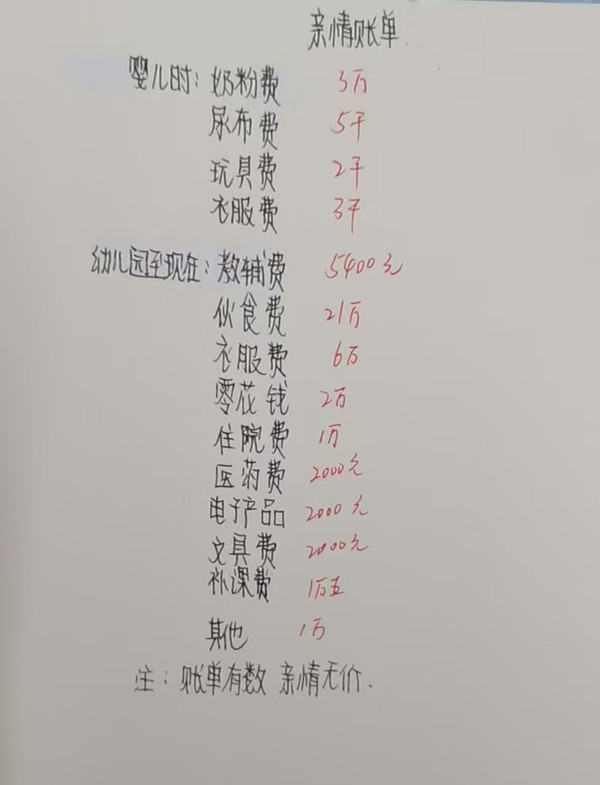 亲情账单.
婴儿时：奶粉费 3万
尿布费 5千
玩具费 2千
衣服费 3千
幼儿园至现在：教辅费 5400元
伙食费 21万
衣服费 6万
零花钱 2万
住院费 1万
医药费 2000元
电子产品 2000元
文具费 2000元
补课费 1万五
其他 1万
注：账单有数 亲情无价.